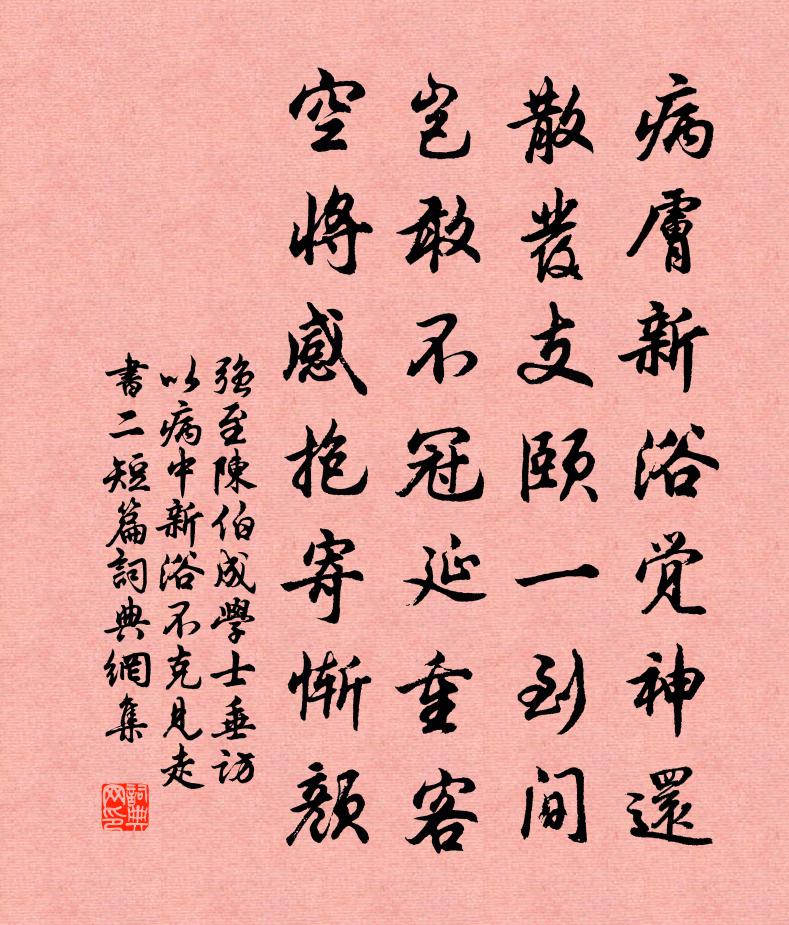 病膚新浴覚神還
散發支頤一到間
岂敢不冠延重客
空將感抱寄慚顔
强至陳伯成學士垂訪
以病中新浴不克見走
書二短篇詞典網集
詞典网印